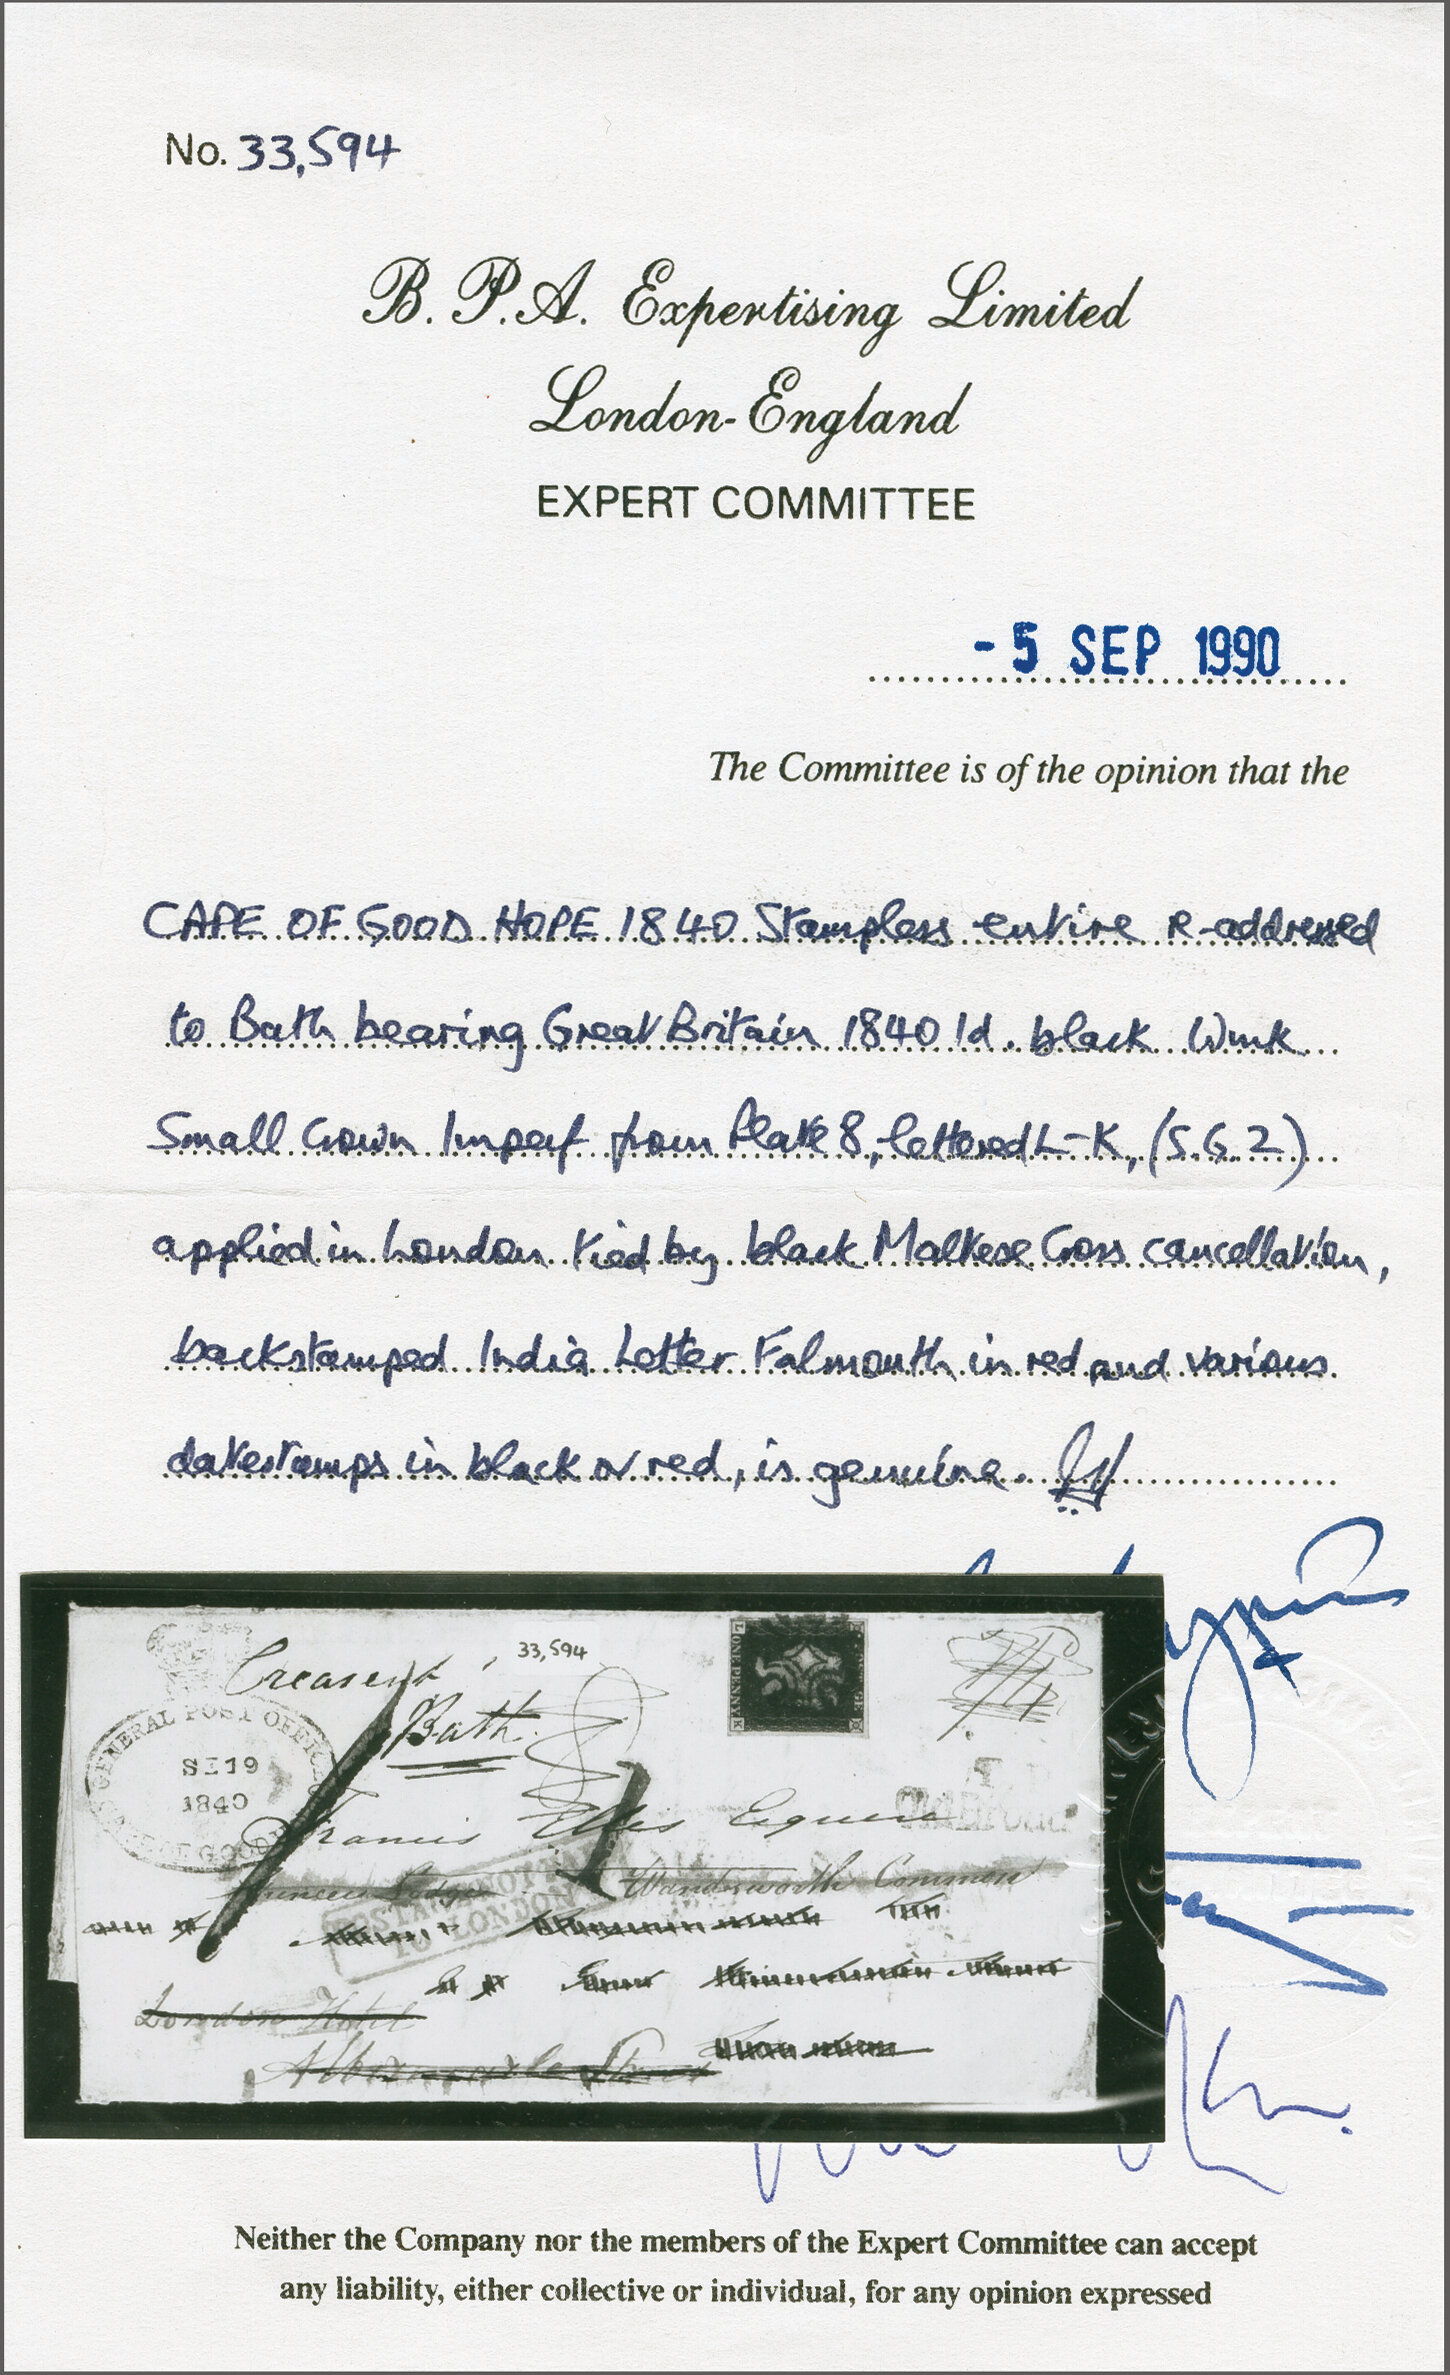 No. 33,594
B. P. A. Expertising Limited
London-England
EXPERT COMMITTEE
- 5 SEP 1990
The Committee is of the opinion that the
CAPE OF GOOD HOPE 1840 Stampless entire re-addressed
to Bath bearing Great Britain 1840 1d. black Wmk
Small Crown Imperf from Plate 8, lettered L-K, (S.G.2)
applied in London tied by black Maltese Cross cancellation,
backstamped India Letter Falmouth in red and various
datestamps in black or red, is genuine.
33,594
Creasent
Bath
GENERAL POST OFFICE
SE 19
1840
OF GOOD
Francis Esquire
Lodge Wandsworth Common
TO LONDON
London Hotel
Albermarle Street
Neither the Company nor the members of the Expert Committee can accept
any liability, either collective or individual, for any opinion expressed